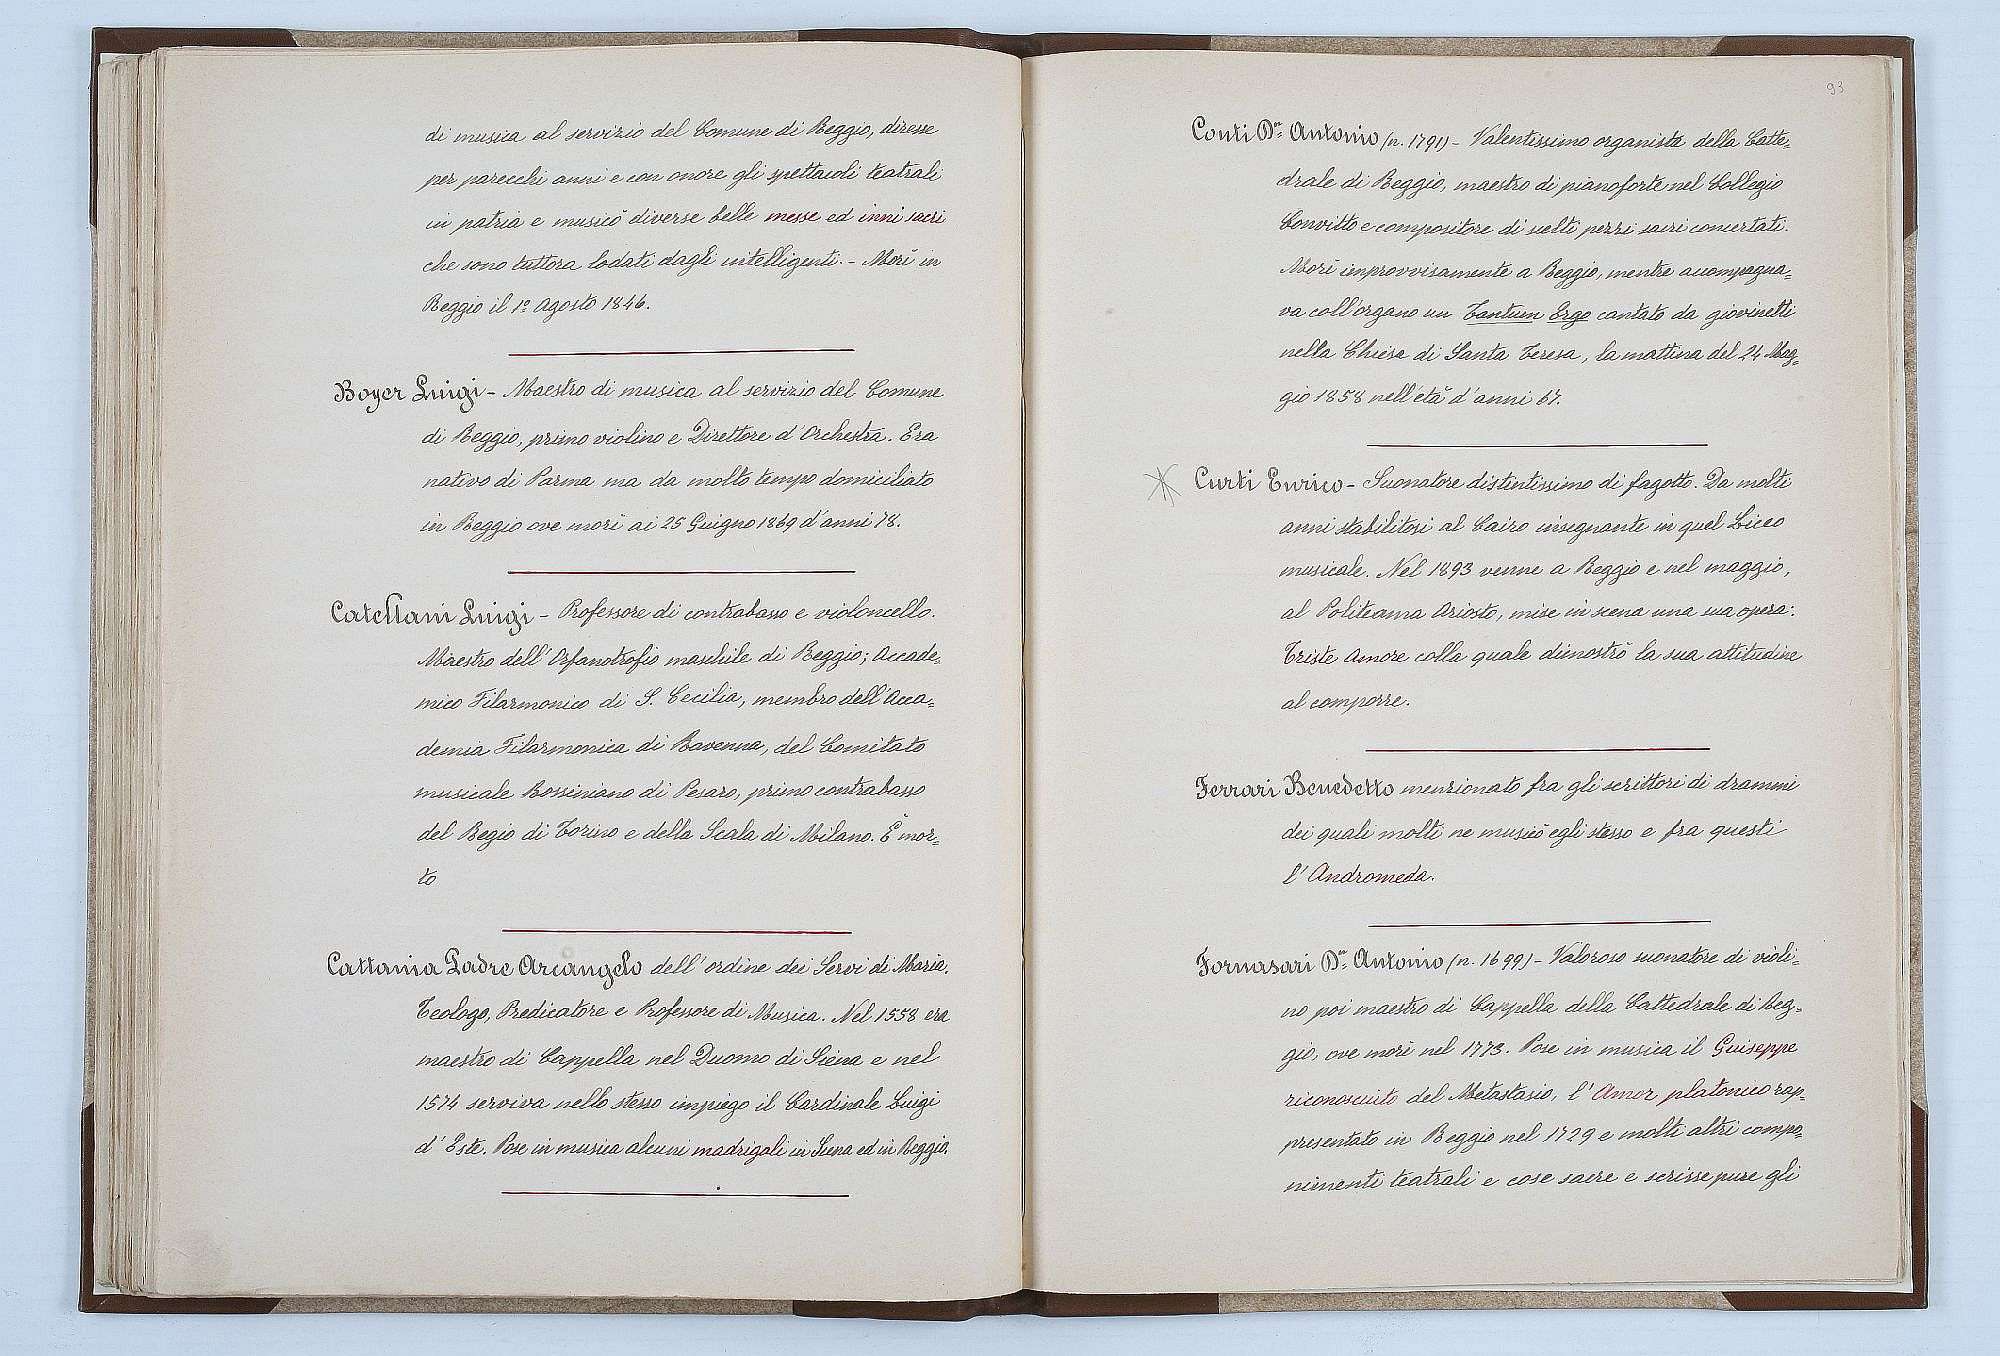 di musica al servizio del Comune di Reggio, diresse
per parecchi anni e con onore gli spettacoli teatrali
in patria e musicò diverse belle messe ed inni sacri
che sono tuttora lodati dagli intelligenti. - Morì in
Reggio il 1º Agosto 1846.
Boyer Luigi - Maestro di musica al servizio del Comune
di Reggio, primo violino e Direttore d'Orchestra. Era
nativo di Parma ma da molto tempo domiciliato
in Reggio ove morì ai 25 Giugno 1869 d'anni 78.
Catellani Luigi - Professore di contrabasso e violoncello.
Maestro dell'Orfanotrofio maschile di Reggio; Accade=
mico Filarmonico di S. Cecilia, membro dell'Acca=
demia Filarmonica di Ravenna, del Comitato
musicale Rossiniano di Pesaro, primo contrabasso
del Regio di Torino e della Scala di Milano. È mor=
to
Cattania Padre Arcangelo dell'ordine dei Servi di Maria.
Teologo, Predicatore e Professore di Musica. Nel 1558 era
maestro di Cappella nel Duomo di Siena e nel
1574 serviva nello stesso impiego il Cardinale Luigi
d'Este. Pose in musica alcuni madrigali in Siena ed in Reggio.
93
Conti Dn. Antonio (n. 1791) - Valentissimo organista della Catte=
drale di Reggio, maestro di pianoforte nel Collegio
Convitto e compositore di scelti pezzi sacri concertati.
Morì improvvisamente a Reggio, mentre accompagna=
va coll'organo un Tantum Ergo cantato da giovinetti
nella Chiesa di Santa Teresa, la mattina del 24 Mag=
gio 1858 nell'età d'anni 67.
Curti Enrico - Suonatore distintissimo di fagotto. Da molti
anni stabilitosi al Cairo insegnante in quel Liceo
musicale. Nel 1893 venne a Reggio e nel maggio,
al Politeama Ariosto, mise in scena una sua opera:
Triste Amore colla quale dimostrò la sua attitudine
al comporre.
Ferrari Benedetto menzionato fra gli scrittori di drammi
dei quali molti ne musicò egli stesso e fra questi
l'Andromeda.
Fornasari Dn. Antonio (n. 1699) - Valoroso suonatore di violi=
no poi maestro di Cappella della Cattedrale di Reg=
gio, ove morì nel 1773. Pose in musica il Guiseppe
riconosciuto del Metastasio, l'Amor platonico rap=
presentato in Reggio nel 1729 e molti altri compo=
nimenti teatrali e cose sacre e scrisse pure gli